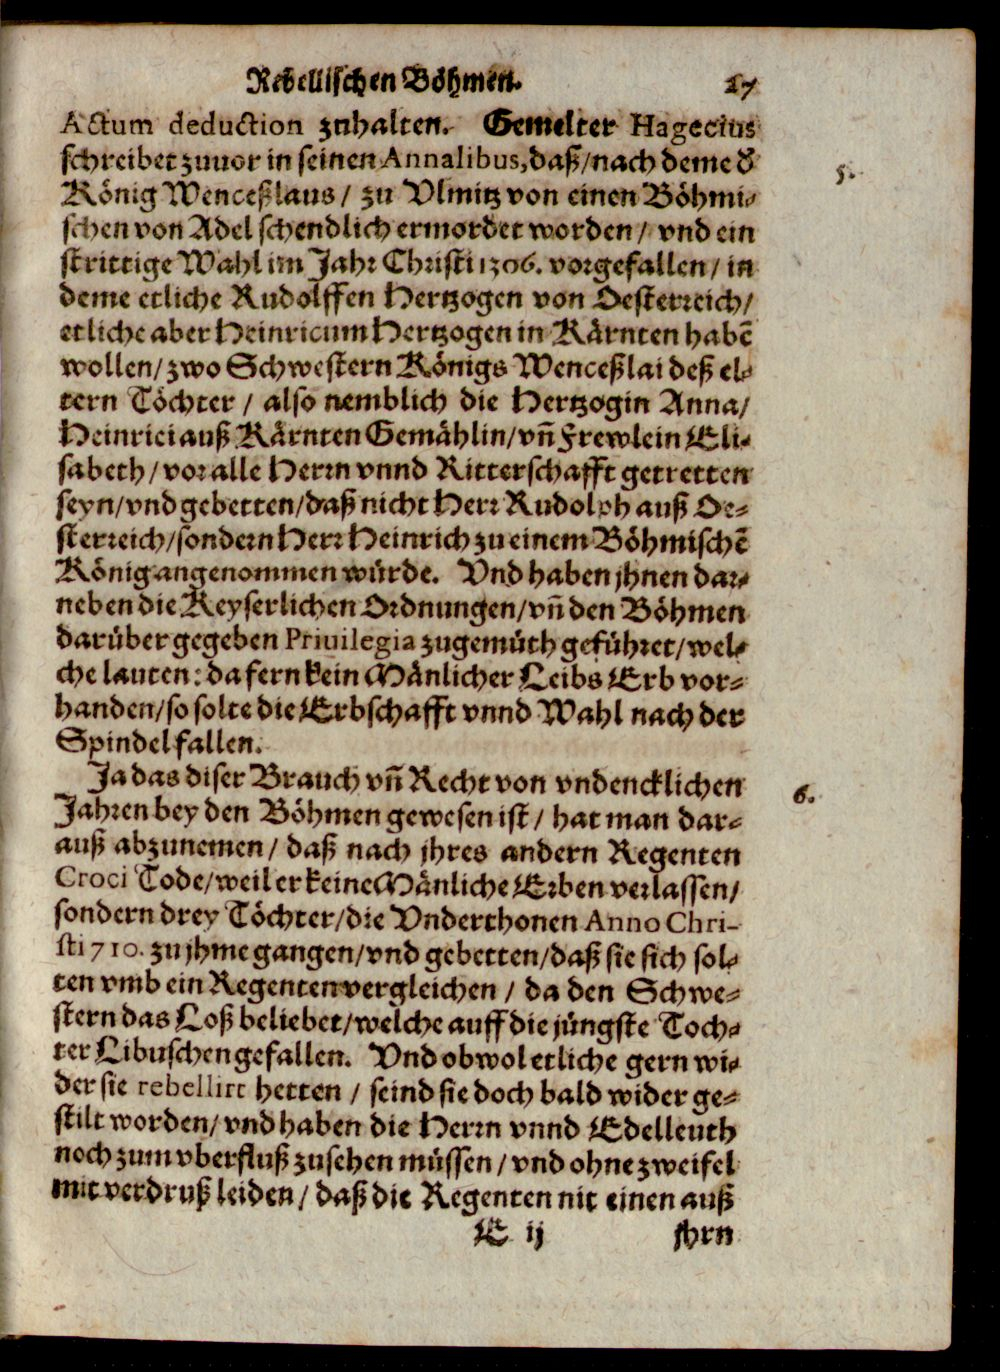 Rebellischen Böhmen. 27
Actum deduction zuhalten. Gemelter Hagecius
schreibet zuuor in seinen Annalibus, daß / nach deme d'
König Wenceßlaus / zu Vlmitz von einen Böhmi-
schen von Adel schendlich ermordet worden / vnd ein
strittige Wahl im Jahr Christi 1306. vorgefallen / in
deme etliche Rudolffen Hertzogen von Oesterreich /
etliche aber Heinricum Hertzogen in Kärnten habē
wollen / zwo Schwestern Königs Wenceßlai deß el-
tern Töchter / also nemblich die Hertzogin Anna /
Heinrici auß Kärnten Gemählin / vn̄ Frewlein Eli-
sabeth / vor alle Herrn vnnd Ritterschafft getretten
seyn / vnd gebetten / daß nicht Herr Rudolph auß Oe-
sterreich / sondern Herr Heinrich zu einem Böhmischē
König angenommen würde. Vnd haben jhnen dar-
neben die Keyserlichen Ordnungen / vn̄ den Böhmen
darüber gegeben Priuilegia zugemüth geführet / wel-
che lauten: da fern kein Mänlicher Leibs Erb vor-
handen / so solte die Erbschafft vnnd Wahl nach der
Spindel fallen.
Ja das diser Brauch vn̄ Recht von vndencklichen
Jahren bey den Böhmen gewesen ist / hat man dar-
auß abzunemen / daß nach jhres andern Regenten
Croci Tode / weil er keine Mänliche Erben verlassen /
sondern drey Töchter / die Vnderthonen Anno Chri-
sti 710. zu jhme gangen / vnd gebetten / daß sie sich sol-
ten vmb ein Regenten vergleichen / da den Schwe-
stern das Loß beliebet / welche auff die jüngste Toch-
ter Libuschen gefallen. Vnd obwol etliche gern wi-
der sie rebellirt hetten / seind sie doch bald wider ge-
stilt worden / vnd haben die Herrn vnnd Edelleuth
noch zum vberfluß zusehen müssen / vnd ohne zweifel
mit verdruß leiden / daß die Regenten nit einen auß
E ij jhrn
5.
6.